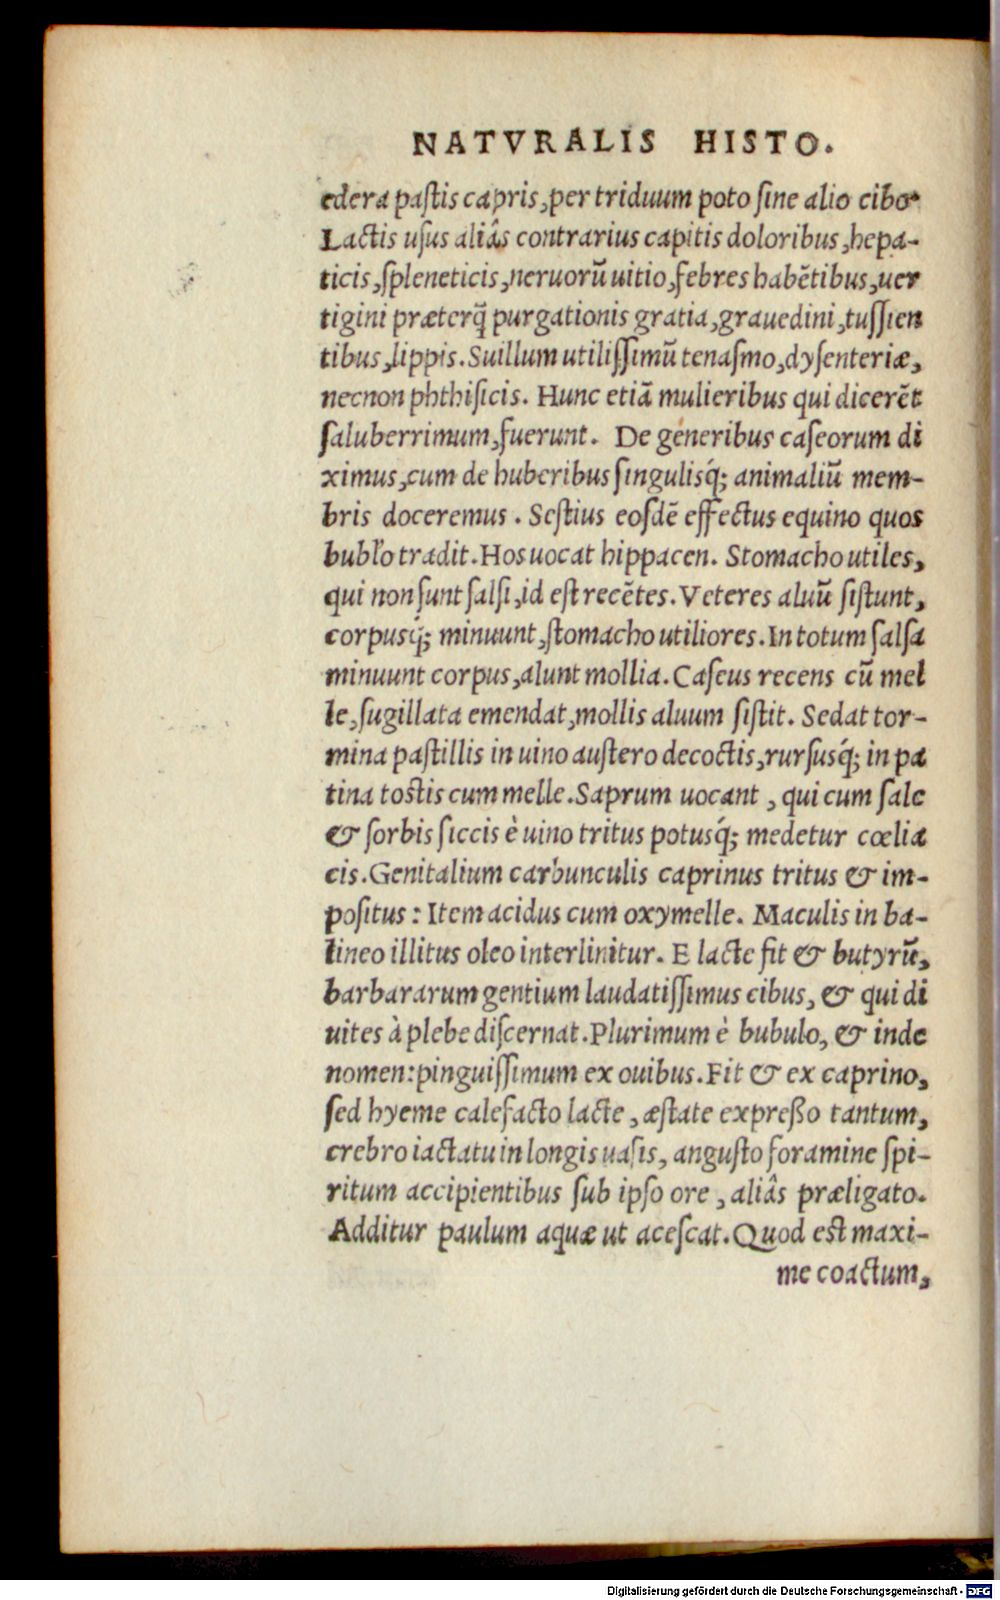 NATVRALIS HISTO.
edera paſtis capris, per triduum poto ſine alio cibo.
Lactis uſus aliâs contrarius capitis doloribus, hepa-
ticis, ſpleneticis, neruorũ uitio, febres habẽtibus, uer
tigini præterq̃ purgationis gratia, grauedini, tuſſien
tibus, lippis. Suillum utiliſſimũ tenaſmo, dyſenteriæ,
necnon phthiſicis. Hunc etiã mulieribus qui dicerẽt
ſaluberrimum, fuerunt. De generibus caſeorum di
ximus, cum de huberibus ſingulisq́; animaliũ mem-
bris doceremus. Seſtius eoſdẽ effectus equino quos
bubl'o tradit. Hos uocat hippacen. Stomacho utiles,
qui non ſunt ſalſi, id est recẽtes. Veteres aluũ ſiſtunt,
corpusq́; minuunt, ſtomacho utiliores. In totum ſalſa
minuunt corpus, alunt mollia. Caſeus recens cũ mel
le, ſugillata emendat, mollis aluum ſiſtit. Sedat tor-
mina paſtillis in uino auſtero decoctis, rurſusq́; in pa
tina toſtis cum melle. Saprum uocant, qui cum ſale
& ſorbis ſiccis è uino tritus potusq́; medetur cœlia
cis. Genitalium carbunculis caprinus tritus & im-
poſitus: Item acidus cum oxymelle. Maculis in ba-
lineo illitus oleo interlinitur. E lacte fit & butyrũ,
barbararum gentium laudatiſſimus cibus, & qui di
uites à plebe diſcernat. Plurimum è bubulo, & inde
nomen: pinguiſſimum ex ouibus. Fit & ex caprino,
ſed hyeme calefacto lacte, æſtate expreßo tantum,
crebro iactatu in longis uaſis, anguſto foramine ſpi-
ritum accipientibus ſub ipſo ore, aliâs præligato.
Additur paulum aquæ ut aceſcat. Quod est maxi-
me coactum,
Digitalisierung gefördert durch die Deutsche Forschungsgemeinschaft - DFG